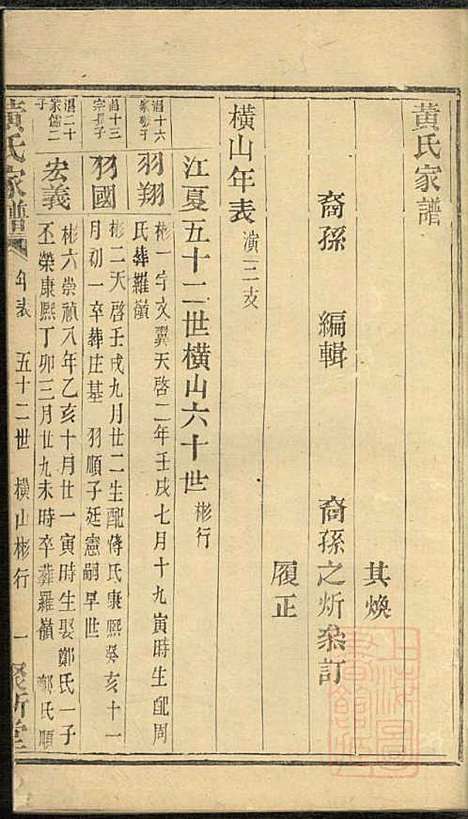 黃氏家譜
其煥
裔孫 編輯 裔孫之炘叅訂
履正
橫山年表 濱三支
江夏五十二世橫山六十世 彬行
湄十六
羽翔 彬一字文翼天啓二年壬戌七月十九寅時生配周
氏葬羅嶺
湄十三
宗長子
羽國 彬二天啓壬戌九月廿二生配傅氏康熙癸亥十一
月初一卒葬庄基 羽順子廷憲嗣早世
湄二十
宏義 彬六崇禎八年乙亥十月廿一寅時生娶鄭氏一子
丕榮康熙丁卯三月廿九未時卒葬羅嶺 鄭氏順
黃氏家譜 年表 五十二世 橫山彬行 一